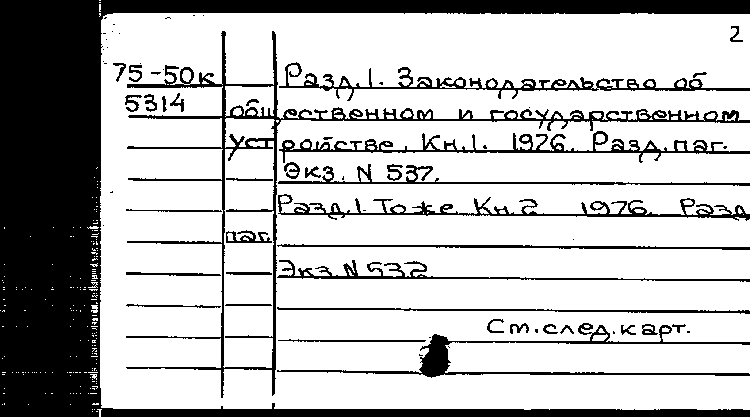 2
75-50к Разд.1. Законодательство об
5314 общественном и государственном
устройстве. Кн.1. 1976. Разд.паг.
Экз. N 537.
Разд.1. То же. Кн.2 1976. Разд
паг.
Экз. N 532
См.след.карт.